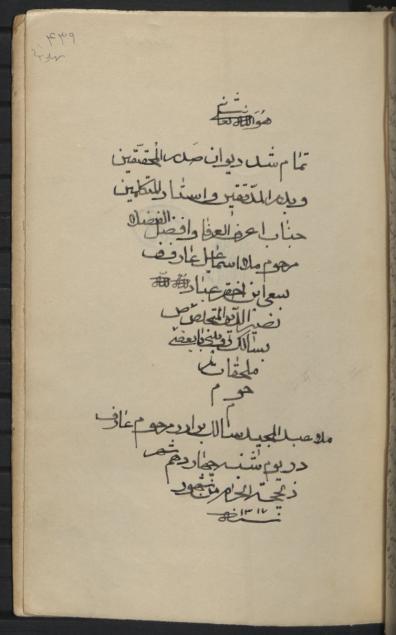 ۴۳۹
هو الله تعالی
تمام شد دیوان صدر المحققین
و بدر المدققین و استاد المتکلمین
جناب اعرف العرفا و افضل الفضلا
مرحوم ملا اسماعیل عارف
بسعی این احقر عباد الله
نصیر الدین المتخلص
بسالک
ملحقات
حوم
م
ملا عبد المجید سالک برادر مرحوم عارف
در یوم شنبه چهاردهم شهر
ذیحجة الحرام من شهور
سنه ۱۳۱۷